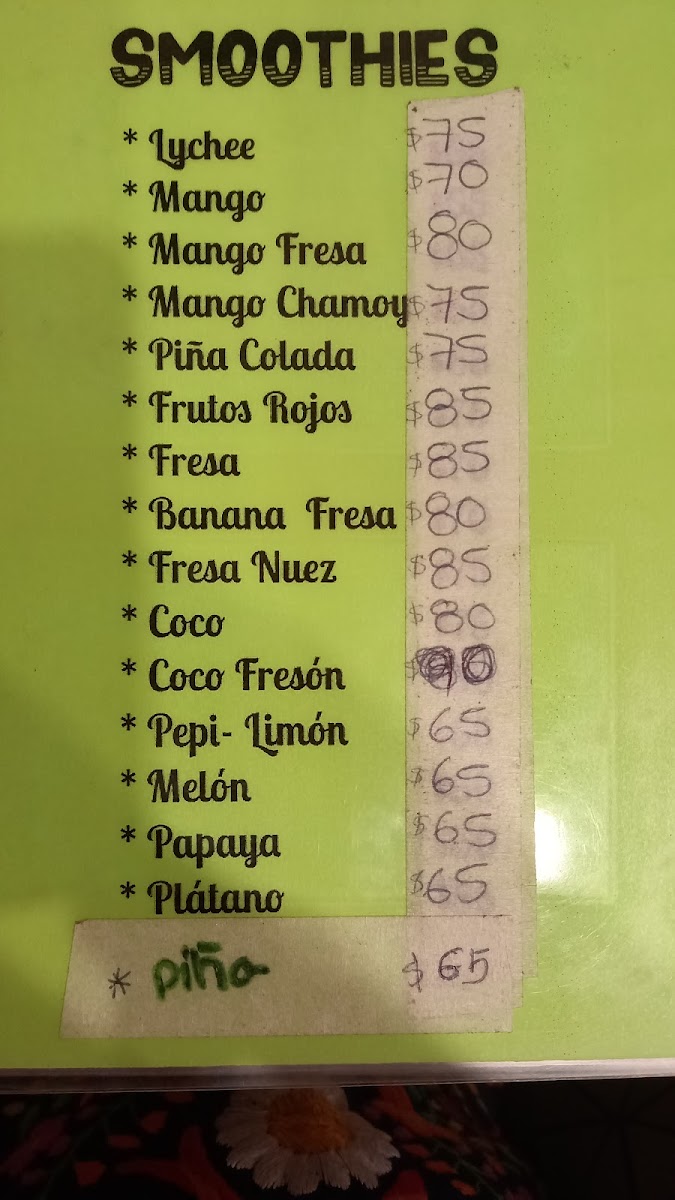 SMOOTHIES
* Lychee $75
* Mango $70
* Mango Fresa $80
* Mango Chamoy $75
* Piña Colada $75
* Frutos Rojos $85
* Fresa $85
* Banana Fresa $80
* Fresa Nuez $85
* Coco $80
* Coco Fresón $90
* Pepi- Limón $65
* Melón $65
* Papaya $65
* Plátano $65
* piña $65